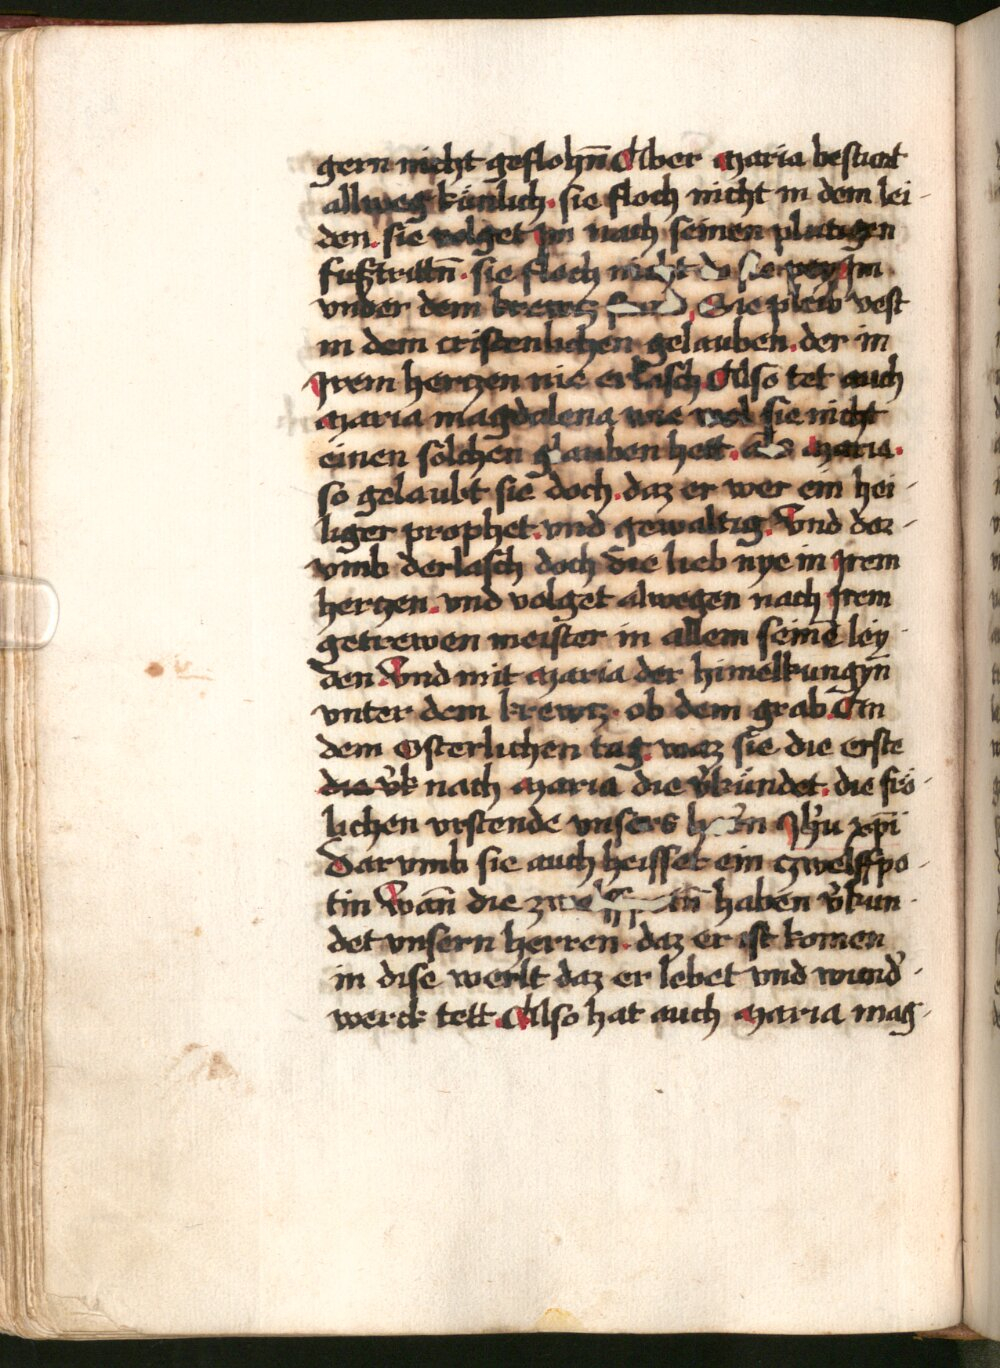 gern nicht geflohn̄ Aber maria bestunt
allweg künlich. sie floch nicht in dem lei-
den. sie volget im nach seinen plutigen
fußtrittn̄. sie floch nicht do sie pey Im
vnder dem krewtz Sie pleib vest
in dem cristenlichen gelauben. der in
Jrem hertzen nie erlasch Also tet auch
maria magdalena wie wol sie nicht
einen solchen glauben hett. als maria.
so gelaubt sie doch. daz er wer ein hei-
liger prophet. vnd gewaltig. Vnd dar-
vmb derlasch doch die lieb nye in Jrem
hertzen. vnd volget alwegen nach Jrem
getrewen meister in allem seinē ley
den Vnd mit maria der himelkungyn̄
vnter dem krewtz. ob dem grab An
dem osterlichen tag. waz sie die erste
die v̓k nach maria die v̓kündet. die frö-
lichen vrstende vnsers Jh̓u xp̄i
Darvmb sie auch heisset ein czwelffpo-
tin Wan̄ die haben v̓kun-
det vnsern herren. daz er ist komen
in dise werlt daz er lebet vnd wund̓-
werck tett. Also hat auch maria mag-